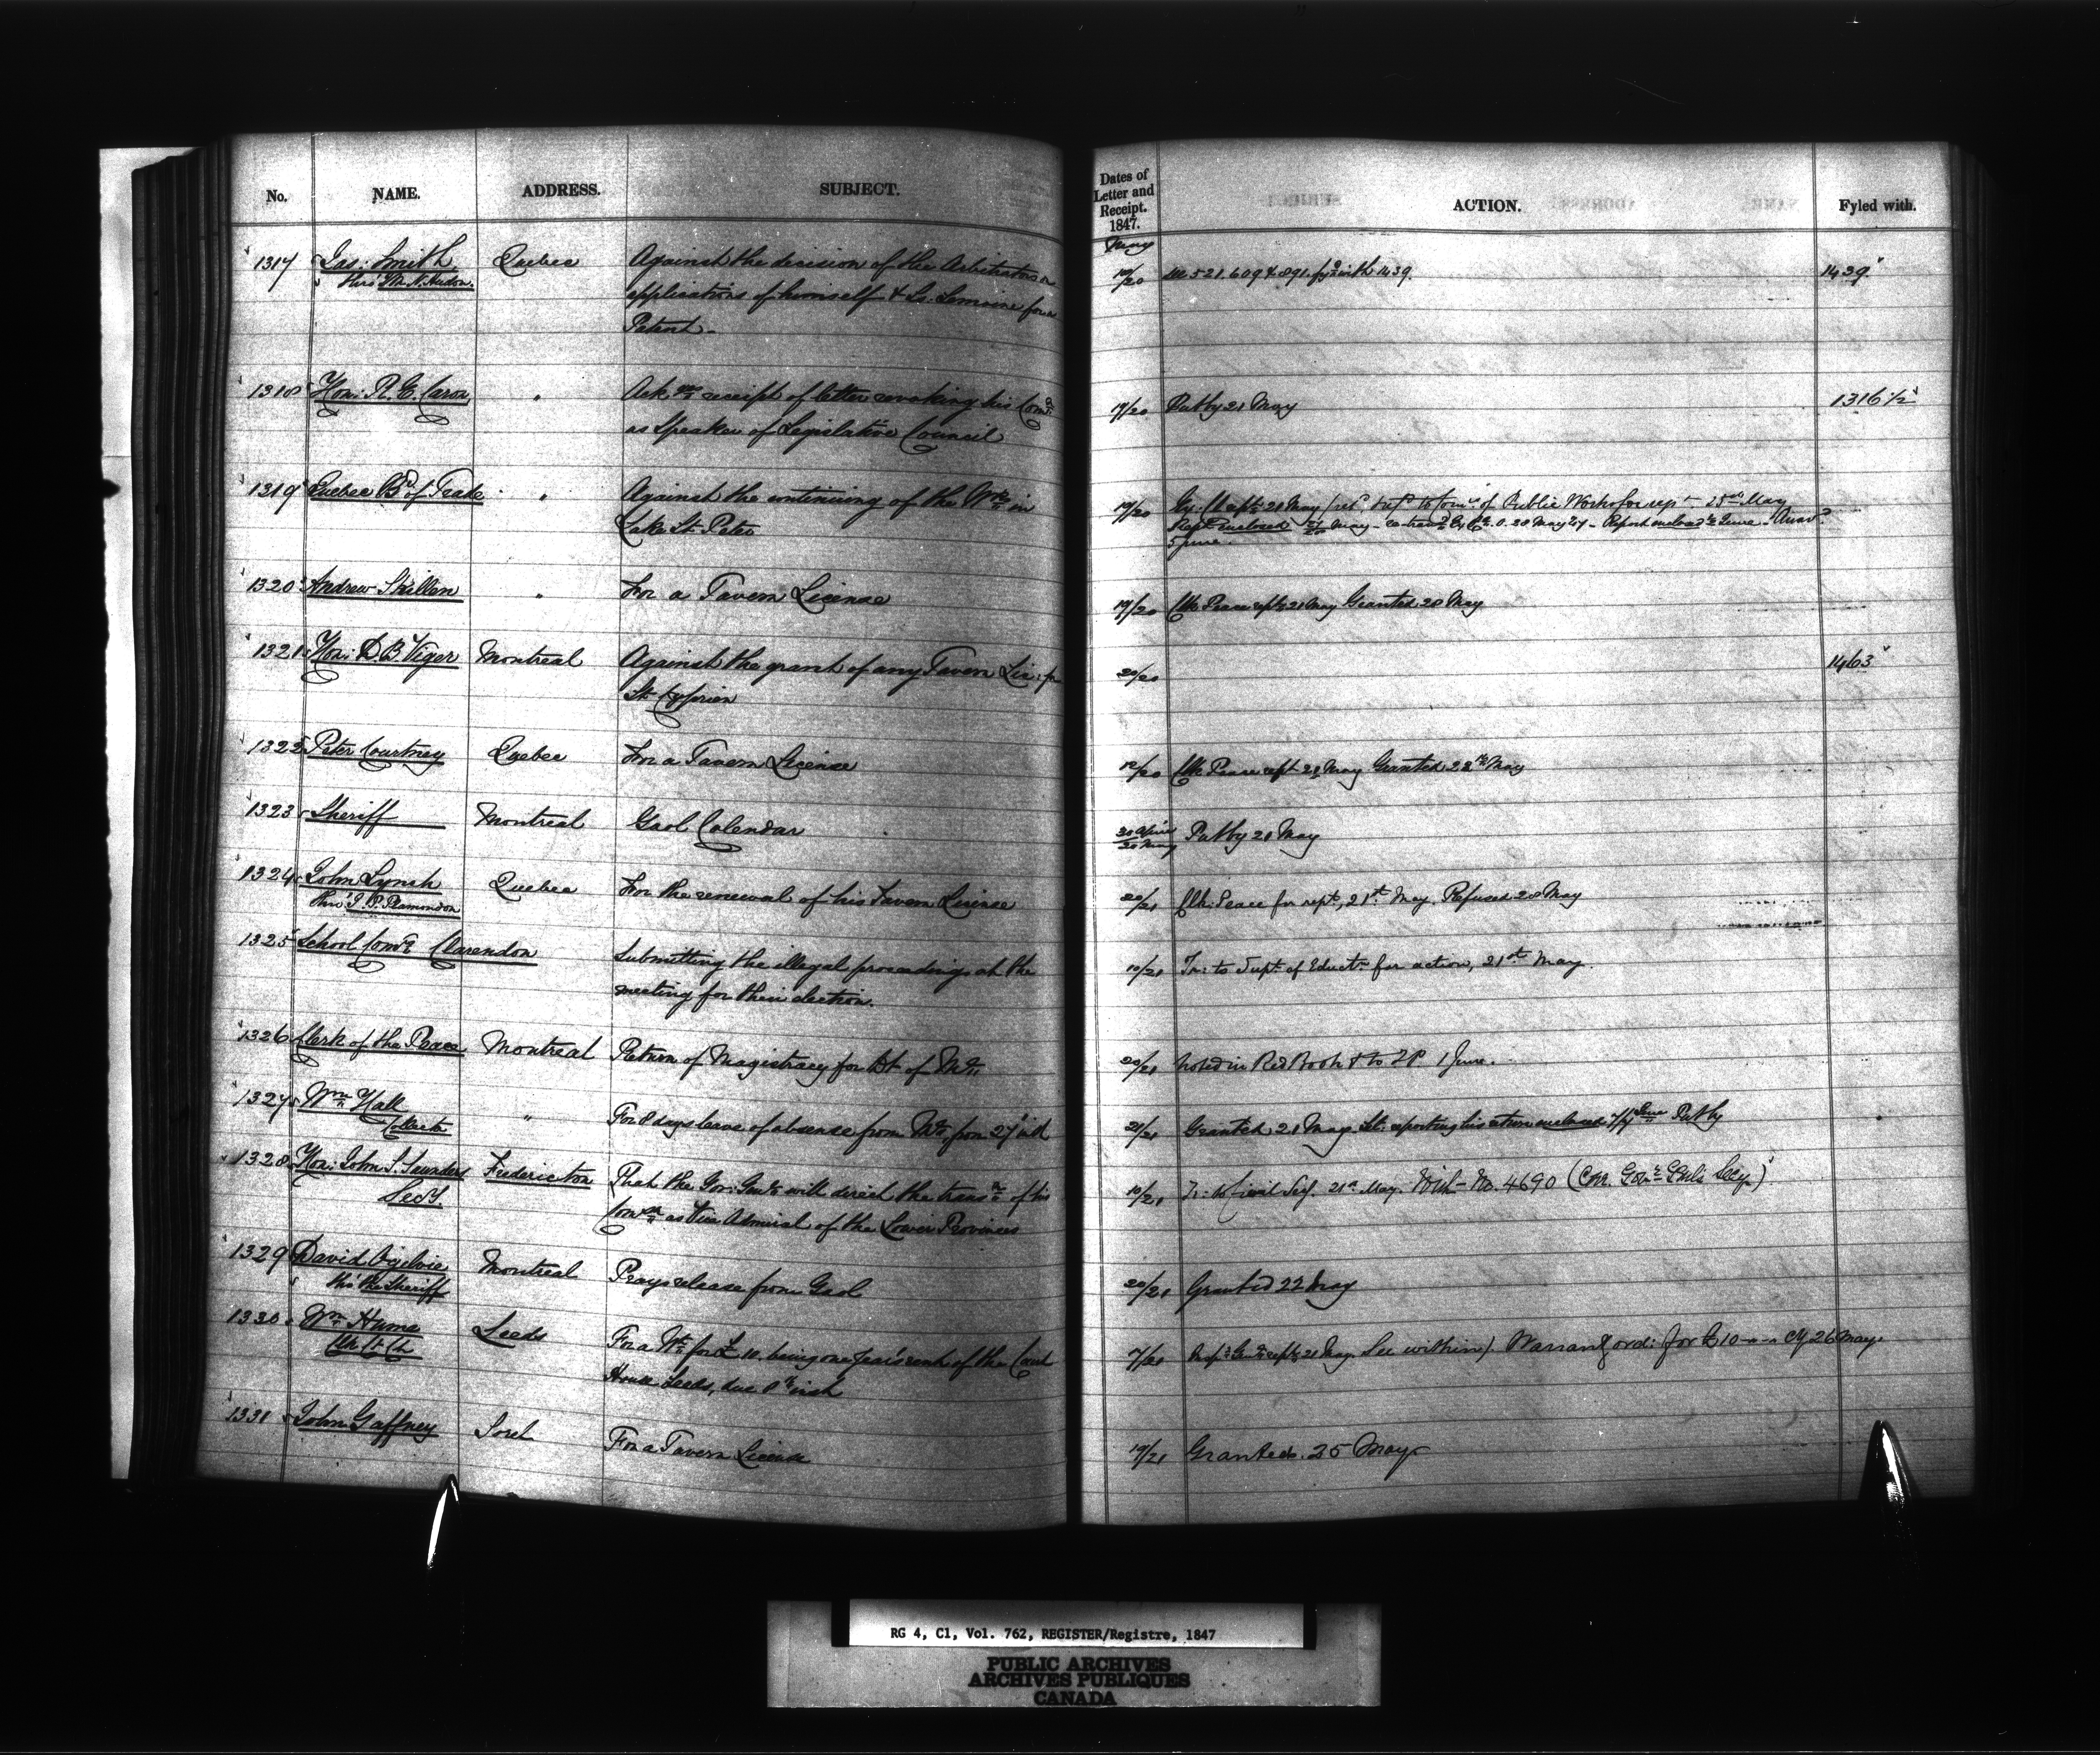 No. NAME. ADDRESS. SUBJECT.
Dates of Letter and Receipt. 1847. ACTION. Fyled with.
May
1317 Jas: Smith Quebec Against the decision of the Arbitrators on 19/20 521. 609 & 891. fyd with 1439. 1439
thro' Mr. N. Hudon. applications of himself & Ls. Lemoine for a
Patent.
1318 Hon: R. E. Caron " Ack receipt of letter revoking his Comn 19/20 Put by 21 May 1316 1/2
as Speaker of Legislative Council
1319 Quebec Bd of Trade " Against the continuing of the Wks in 19/20 21 May to Comrs of Public Works for rept 25 May
Lake St. Peter enclosed May 28 May 47 Report enclosed June
5 June.
1320 Andrew Skillen " For a Tavern License 19/20 Clk Peace rept 21 May Granted 28 May
1321 Hon: D. B. Viger Montreal Against the grant of any Tavern Lic: for 20/20 1463
St. Cyprien
1322 Peter Courtney Quebec For a Tavern License 12/20 Clk Peace rept 21 May Granted 28th May
1323 Sheriff Montreal Gaol Calendar 30 April/20 May Put by 21 May
1324 John Lynch Quebec For the renewal of his Tavern License 20/21 Clk: Peace for rept, 21st May. Refused 28 May
thro' J. P. Plamondon
1325 School Comrs Clarendon Submitting the illegal proceedings at the 10/21 Tr: to Supt of Eductn for action, 21st May.
meeting for their election.
1326 Clerk of the Peace Montreal Return of Magistracy for Dt of Ml 20/21 Noted in Red Book & to I.P. 1 June.
1327 Wm Hall " For 8 days leave of absence from Ml, from 27 inst 21/21 Granted 21 May. Lt: reporting his return enclosed June Put by
Collector
1328 Hon: John S. Saunders Fredericton That the Gov: Genl will direct the transn of his 10/21 Tr: to Civil Secy. 21st May. With No. 4690 (Cor. Govr Genl's Secy)
Secy. Comsn as Vice Admiral of the Lower Provinces
1329 David Ogilvie Montreal Prays release from Gaol 20/21 Granted 22 May
thro' the Sheriff
1330 Wm Hume Leeds For a Wt for £10. being one year's rent of the Court 7/21 Insp: Genl rept 21 May. See within). Warrant ord: for £10-"-" 26 May.
Clk Ct House Leeds, due 8th inst
1331 John Gaffney Sorel For a Tavern License 19/21 Granted. 25 May
RG 4, C1, Vol. 762, REGISTER/Registre, 1847
PUBLIC ARCHIVES
ARCHIVES PUBLIQUES
CANADA